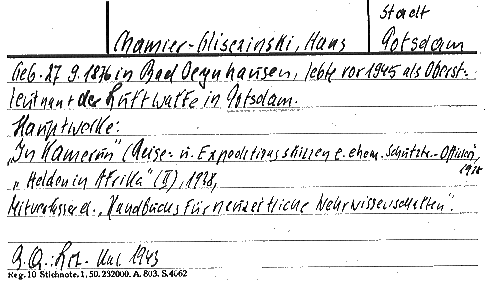 Stadt
Chamier-Glisczinski, Hans Potsdam
Geb. 27.9.1876 in Bad Oeynhausen, lebte vor 1945 als Oberst-
leutnant der Luftwaffe in Potsdam.
Hauptwerke:
„In Kamerun" (Reise- u. Expeditionsskizzen e. ehem. Schutztr.-Offiziers,
1925
„Helden in Afrika" (II), 1938,
Mitverfasser d. „Handbuchs für neuzeitliche Wehrwissenschaften".
1943
Reg. 10 Stichnote. 1, 50. 232000. A. 803. S. 4062